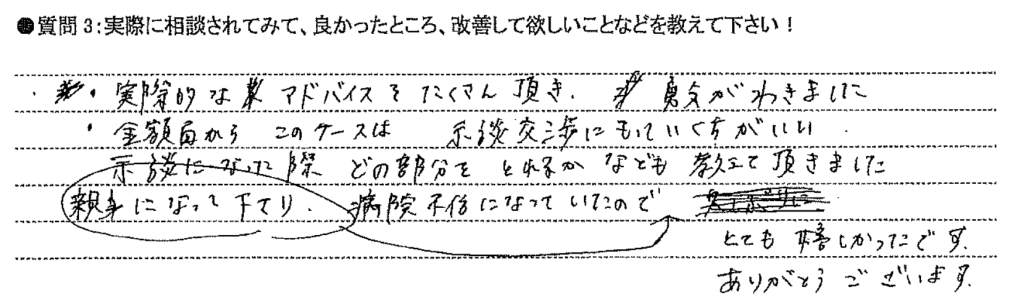 ●質問3:実際に相談されてみて、良かったところ、改善して欲しいことなどを教えて下さい!
・実際的なアドバイスをたくさん頂き、勇気がわきました
・金額面から このケースは 示談交渉にもっていく方がいい
示談になった際 どの部分を とれるか なども 教えて頂きました
親身になって下さり、病院不信になっていたので
とても嬉しかったです。
ありがとうございます。